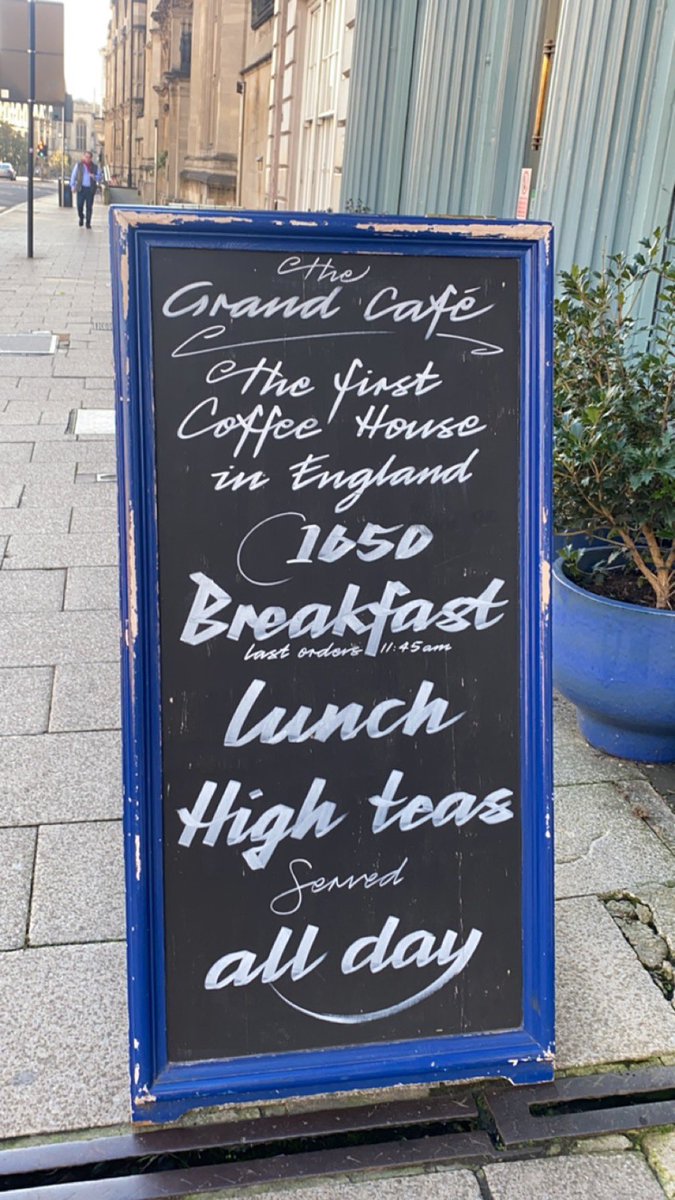 the
Grand Café
the first
Coffee House
in England
1650
Breakfast
last orders 11:45am
lunch
High teas
Served
all day